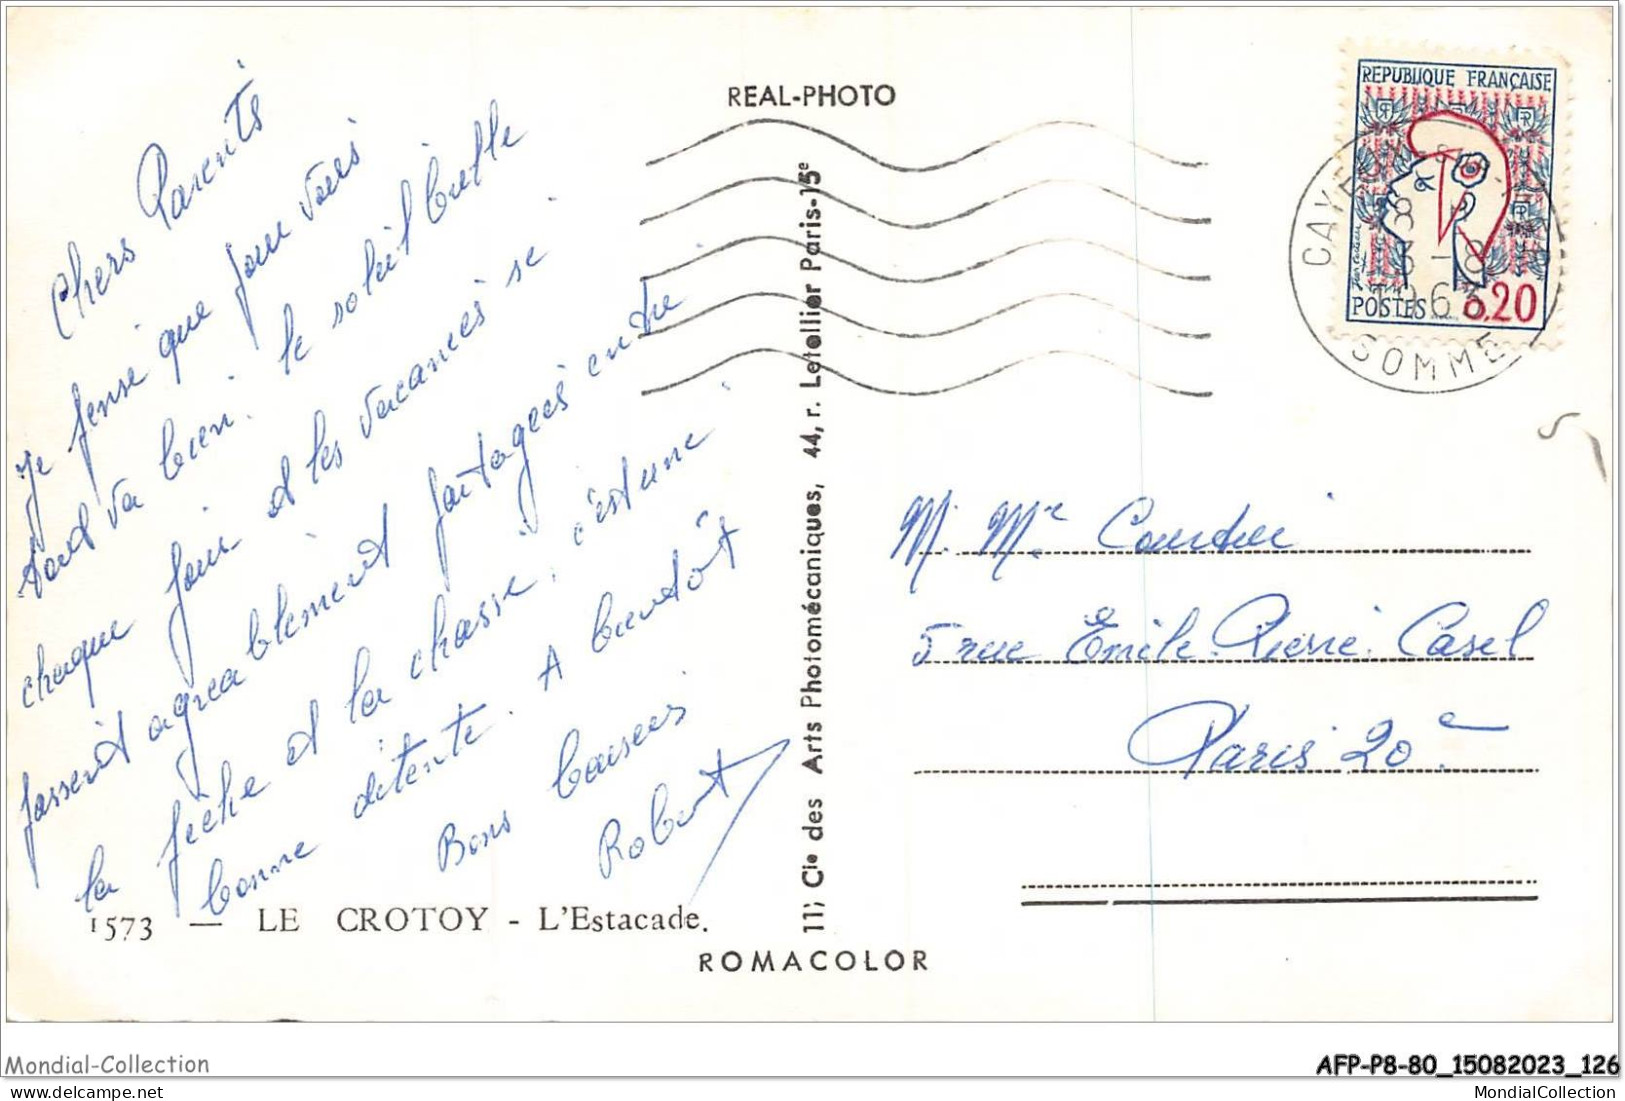 REAL-PHOTO
Chers Parents
Je pense que pour vous
tout va bien. Le soleil brille
chaque jour et les vacances se
passent agréablement partagées entre
la pêche et la chasse, c'est une
bonne détente. A bientôt
Bons baisers
Robert
1573 — LE CROTOY - L'Estacade.
ROMACOLOR
11, Cie des Arts Photomécaniques, 44, r. Letellier Paris-15e
REPUBLIQUE FRANÇAISE
POSTES 0,20
CAYEUX
18
3-8
1963
SOMME
M. Me
5 rue Émile-Pierre Casel
Paris 20e
Mondial-Collection
AFP-P8-80_15082023_126
MondialCollection
MondialCollection